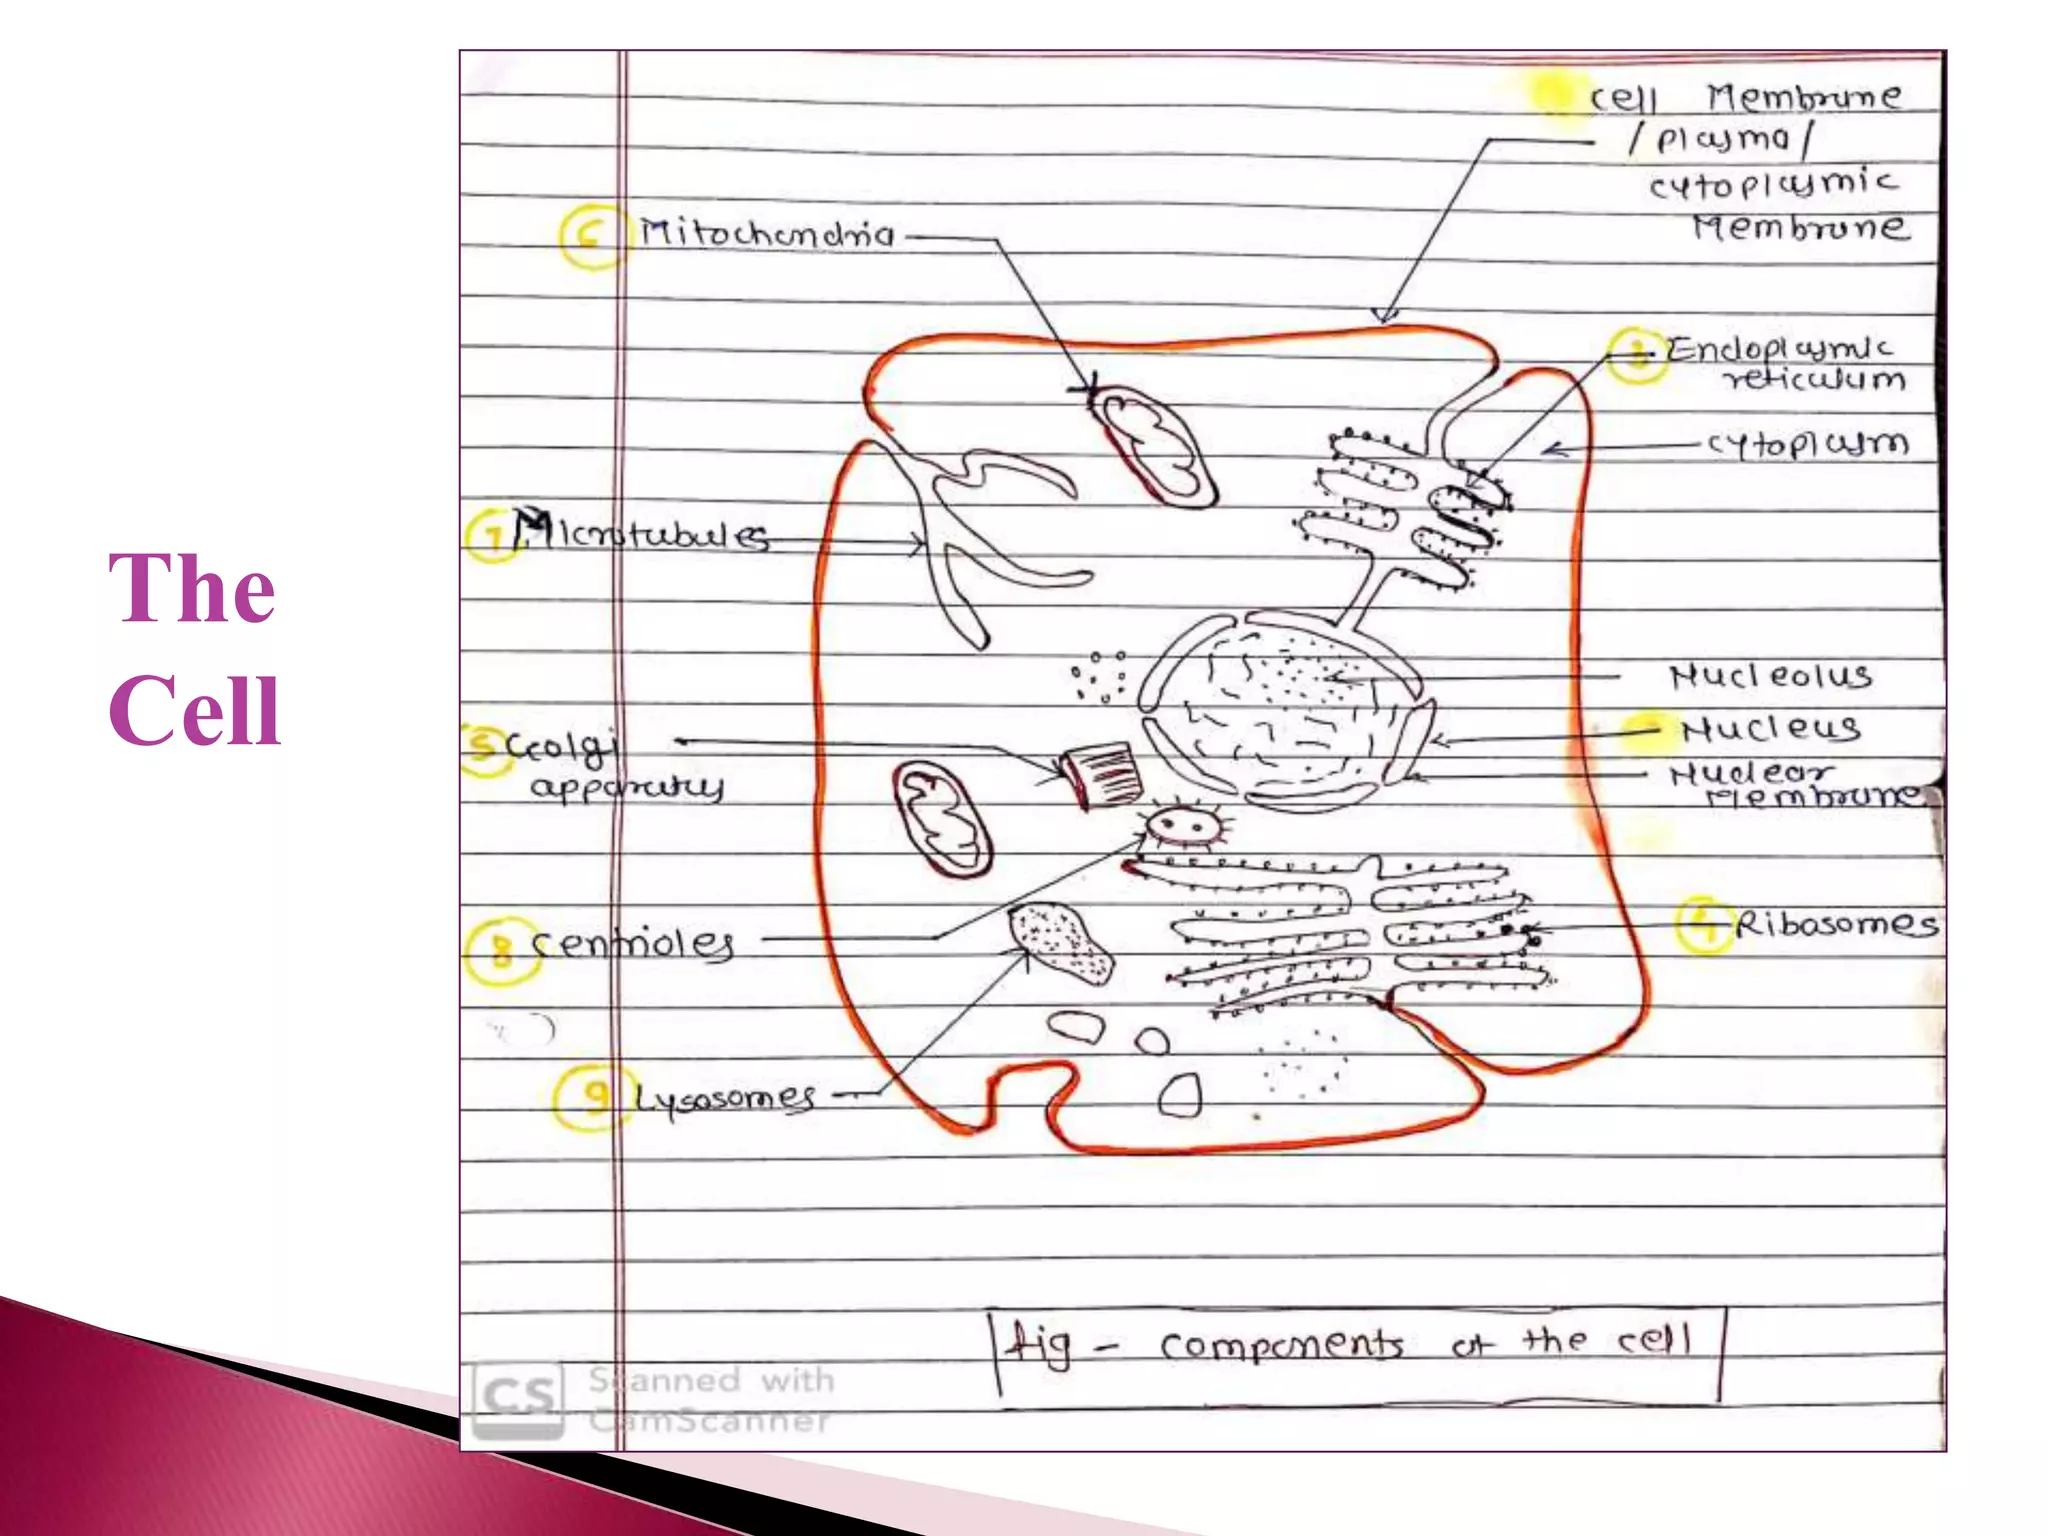 The
Cell
Cell Membrane
/ plasma /
cytoplasmic
Membrane
6 Mitochondria
3 Endoplasmic
reticulum
cytoplasm
7 Microtubules
Nucleolus
Nucleus
5 Golgi
apparatus
Nuclear
Membrane
8 Centrioles
4 Ribosomes
9 Lysosomes
fig - components of the cell
CS Scanned with
CamScanner